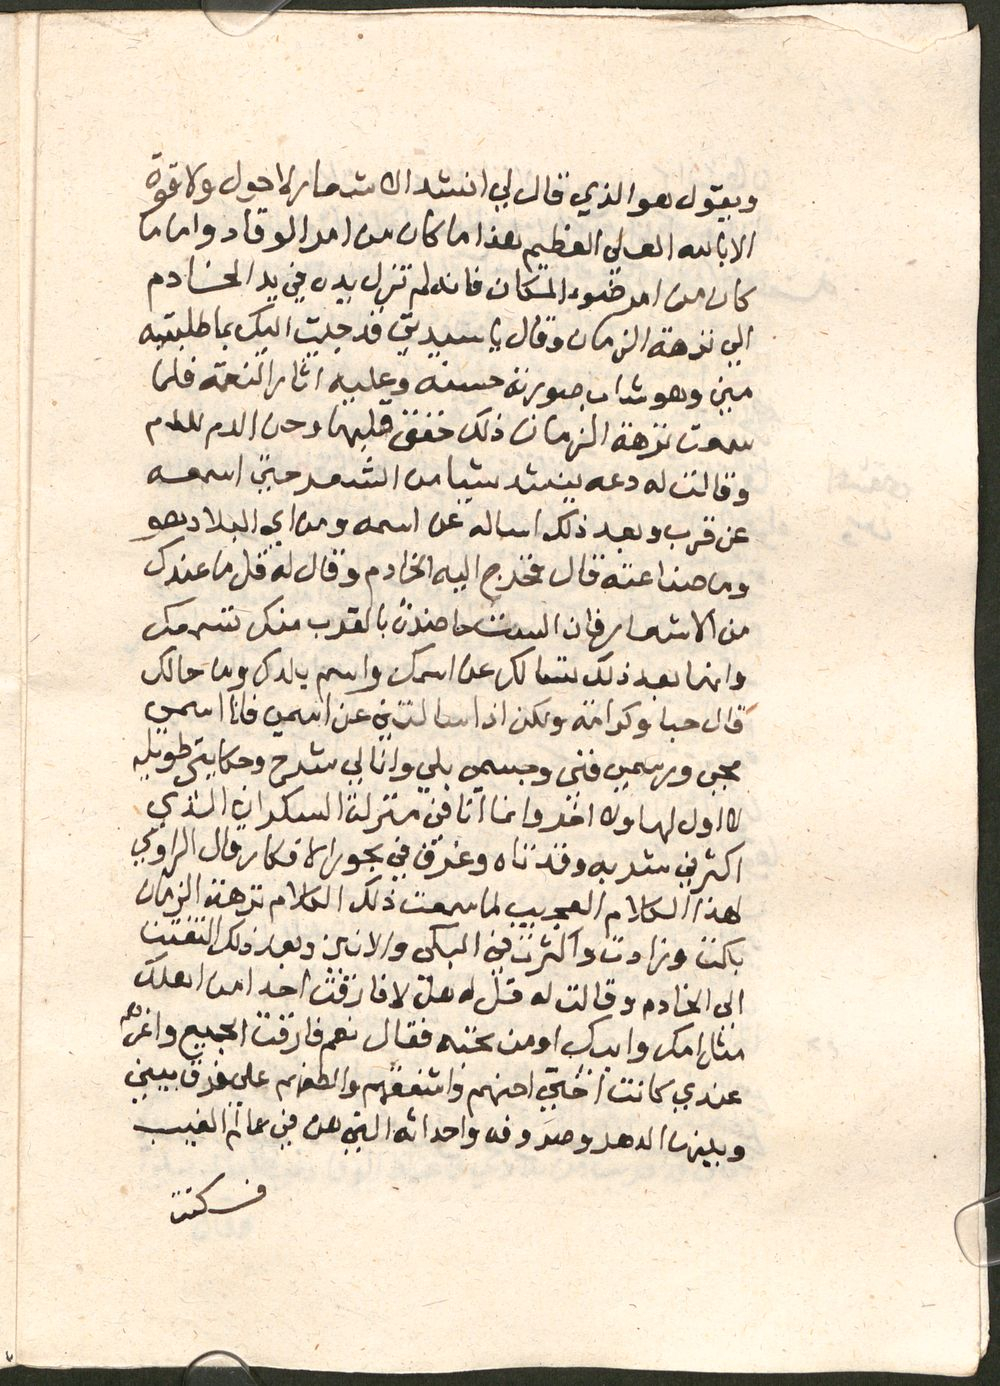 ويقول هو الذي قال لي انشد الاشعار لا حول ولا قوة
الا بالله العلي العظيم هذا ما كان من امر الوقاد واما ما
كان من امر ضوء المكان فانه لم تزل يده في يد الخادم
الي نزهة الزمان وقال يا سيدتي قد جيت اليك بما طلبتيه
مني وهو شاب صورته حسنه وعليه اثار النعمه فلما
سمعت نزهة الزمان ذلك خفق قلبها وحن الدم للدم
وقالت له دعه ينشد شيا من الشعر حتي اسمعه
عن قرب وبعد ذلك اساله عن اسمه ومن اي البلاد هو
وما صناعته قال فخرج اليه الخادم وقال له قل ما عندك
من الاشعار فان الست حاضرة بالقرب منك تسمعك
وانها بعد ذلك تسالك عن اسمك واسم بلدك وما حالك
قال حبا وكرامة ولكن اذا سالتني عن اسمي فانا اسمي
محي ورسمي فني وجسمي بلي وانا لي شرح وحكايتي طويله
لا اول لها ولا اخر وانما انا في منزلة السكران الذي
اكثر في شربه وقد تاه وغرق في بحور الافكار قال الراوي
لهذا الكلام العجيب لما سمعت ذلك الكلام نزهة الزمان
بكت وزادت واكثرت في البكي والانين وبعد ذلك التفتت
الي الخادم وقالت له قل له هل لا فارقت احدا من اهلك
مثل امك وابيك او من تحبه فقال نعم فارقت الجميع واعزهم
عندي كانت اختي احنهم واشفقهم والطفهم علي فرق بيني
وبينها الدهر وصروفه واحداثه التي هن في عالم الغيب
فسكتت